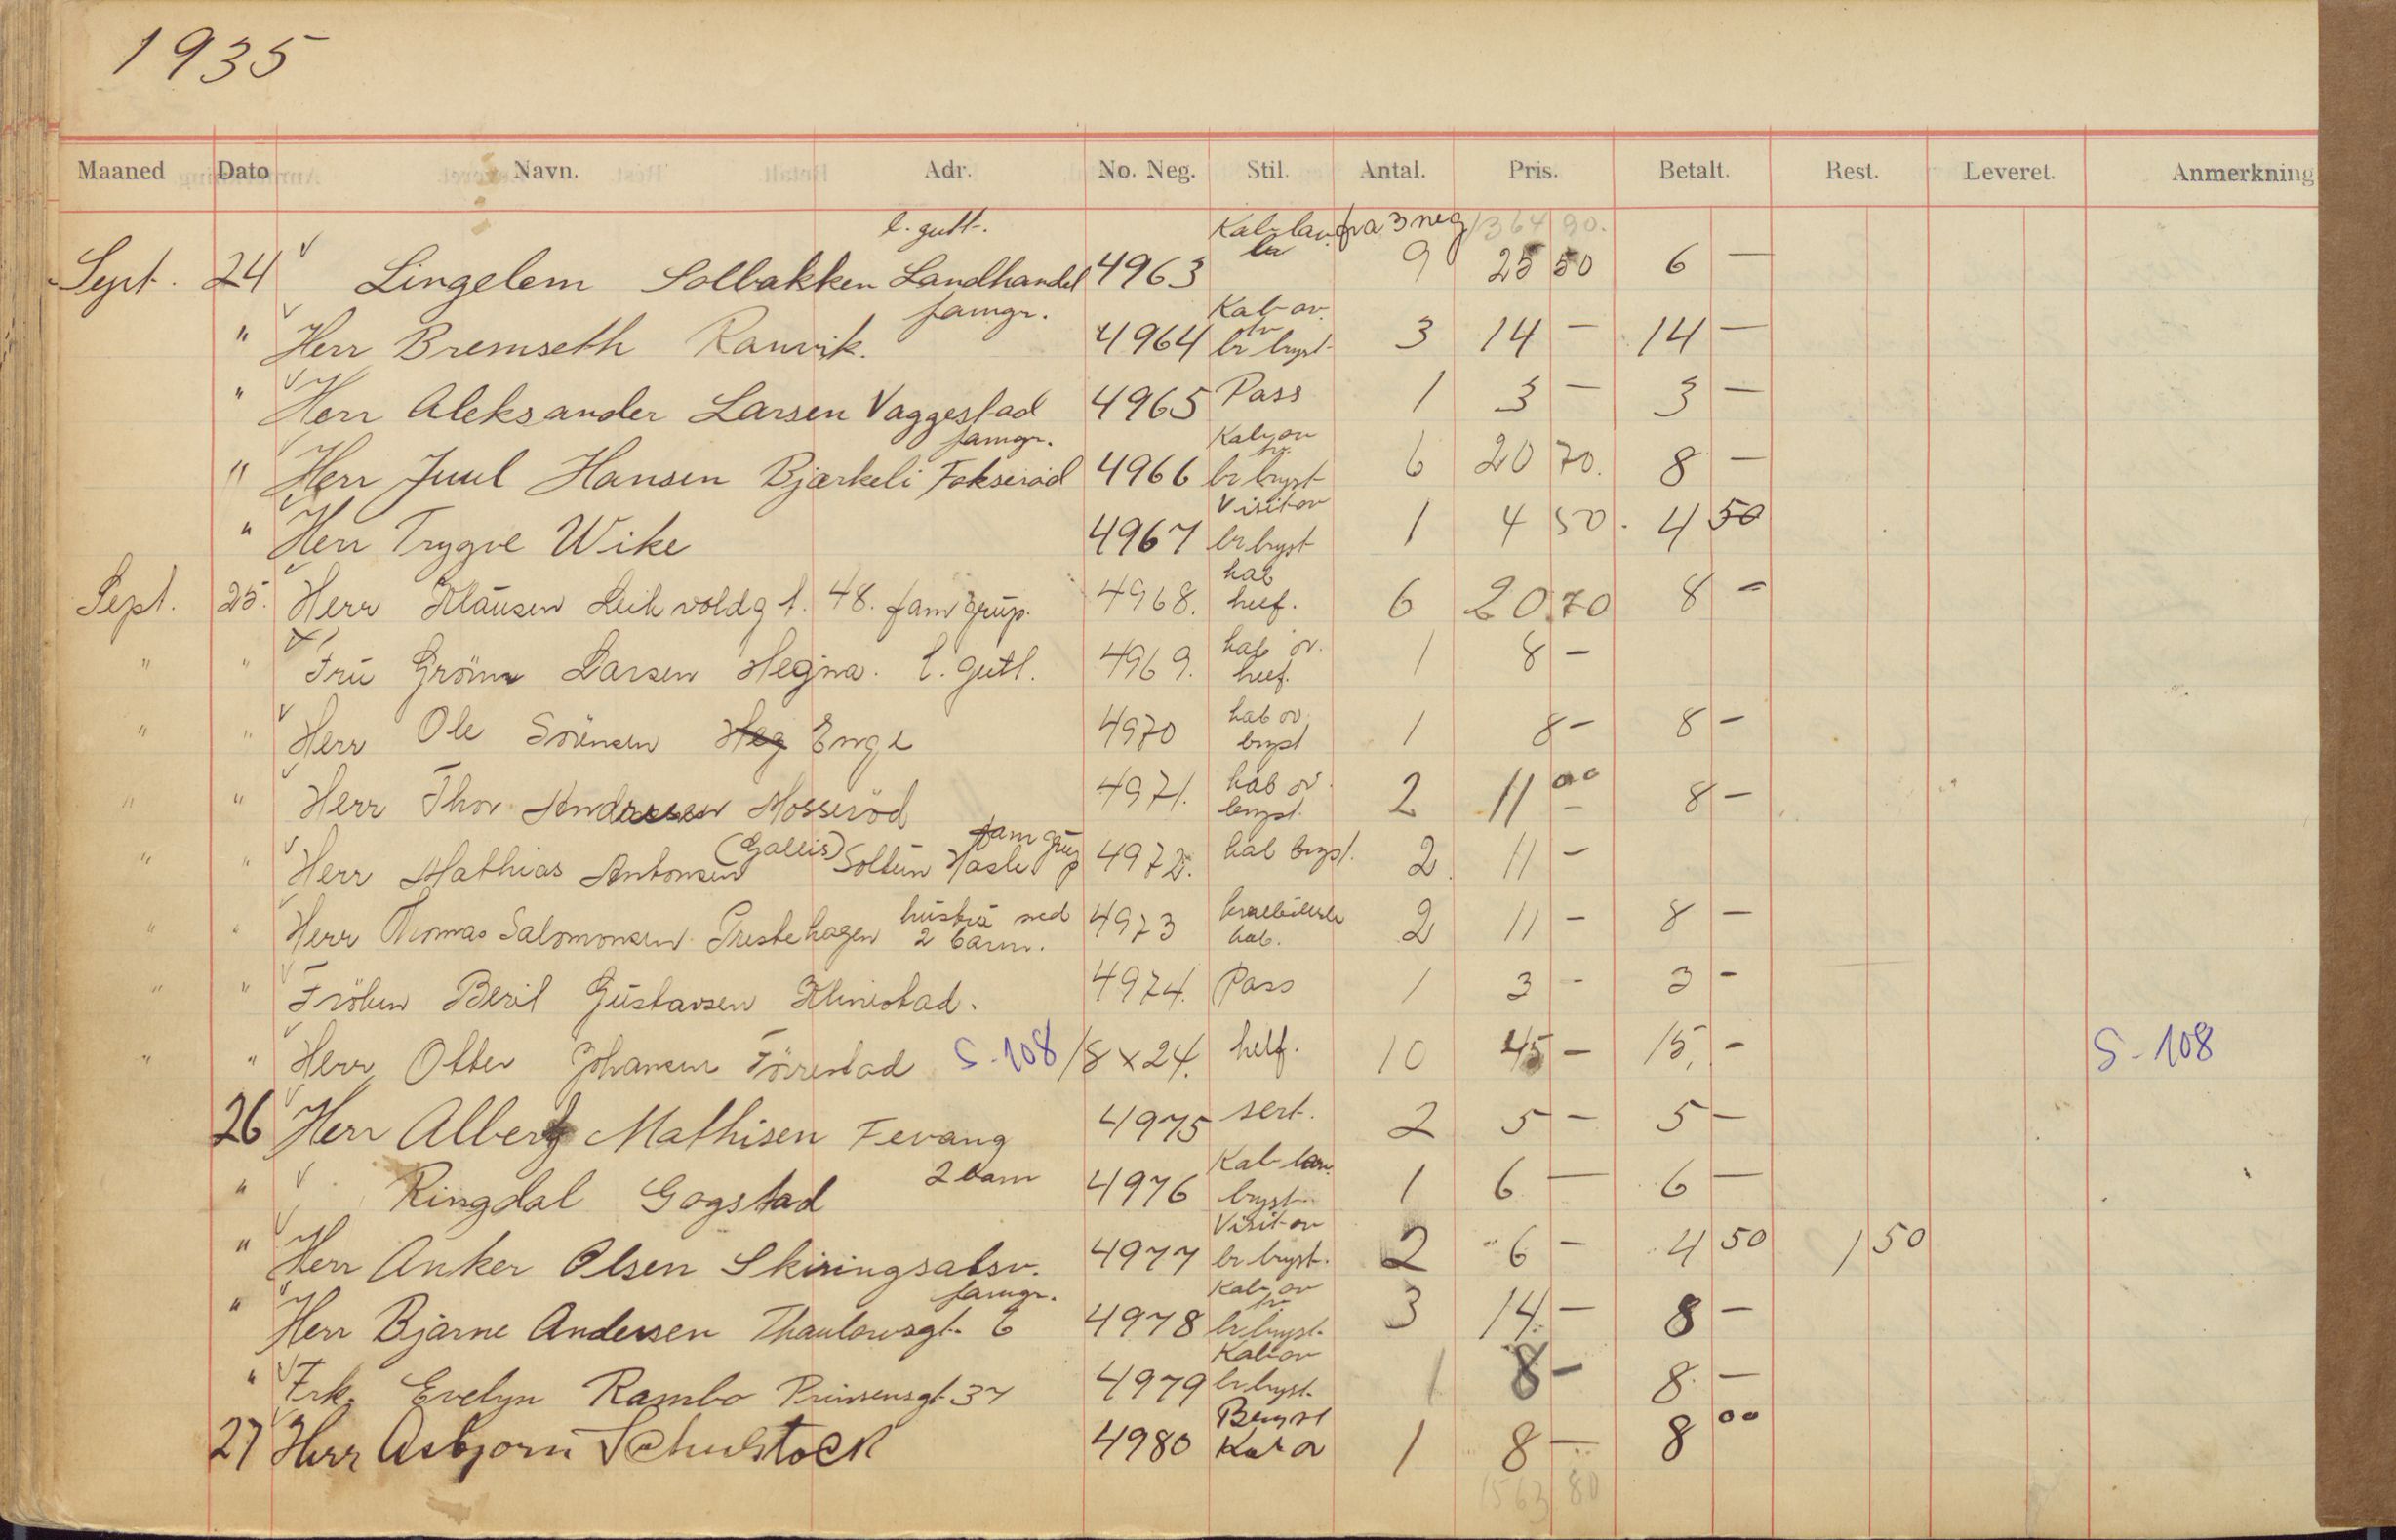 1935
Maaned Dato Navn. Adr. No. Neg. Stil. Antal. Pris. Betalt. Rest. Leveret. Anmerkning
l. gutt. Kab lav fra 3 neg 1364 90.
Sept. 24 Lingelem Solbakken Landhandel 4963 9 25 50 6 —
famgr. Kab ov.
" Herr Bremseth Ranvik. 4964 br bryst 3 14 — 14 —
" Herr Aleksander Larsen Vaggestad 4965 Pass 1 3 — 3 —
famgr. Kab ov
" Herr Juul Hansen Bjærkeli Fokserød 4966 br bryst 6 20 70. 8 —
Visit ov
" Herr Trygve Wike 4967 br bryst 1 4 50. 4 50
kab
Sept. 25. Herr Klausen Leikvoldgt. 48. fam grup. 4968. helf. 6 20 70 8 –
kab ov.
" " Fru Larsen Hegna. l. gutt. 4969. helf. 1 8 –
kab ov.
" " Herr Ole Sörensen Heg Enge 4970 bryst 1 8 – 8 –
kab ov.
" " Herr Thor Andresen Mosseröd 4971. bryst. 2 11 00 8 –
(Gallis) fam grup
" " Herr Mathias Antonsen Soltun Hasle 4972. kab bryst. 2 11 –
hustru med
" " Herr Thomas Salomonsen Prestehagen 2 barn. 4973 kab. 2 11 – 8 –
" " Fröken Beril Gustavsen Klinestad. 4974. Pass 1 3 – 3 –
" " Herr Otter Johansen Törrestad S-108 18 x 24. helf. 10 45 – 15, – S-108
26 Herr Albert Mathisen Fevang 4975 sert. 2 5 – 5 –
2 barn Kab lav.
" Ringdal Gogstad 4976 bryst 1 6 — 6 —
Visit ov
" Herr Anker Olsen Skiringsalsv. 4977 br bryst. 2 6 – 4 50 1 50
famgr. Kab ov
" Herr Bjarne Andersen Thaulowsgt. 6 4978 br bryst. 3 14 – 8 –
Kab ov
" Frk. Evelyn Rambo Prinsensgt 37 4979 br bryst. 1 8 – 8. —
Bryst
27 Herr Asbjørn Schulstock 4980 Kab ov 1 8 — 8 00
1563 80